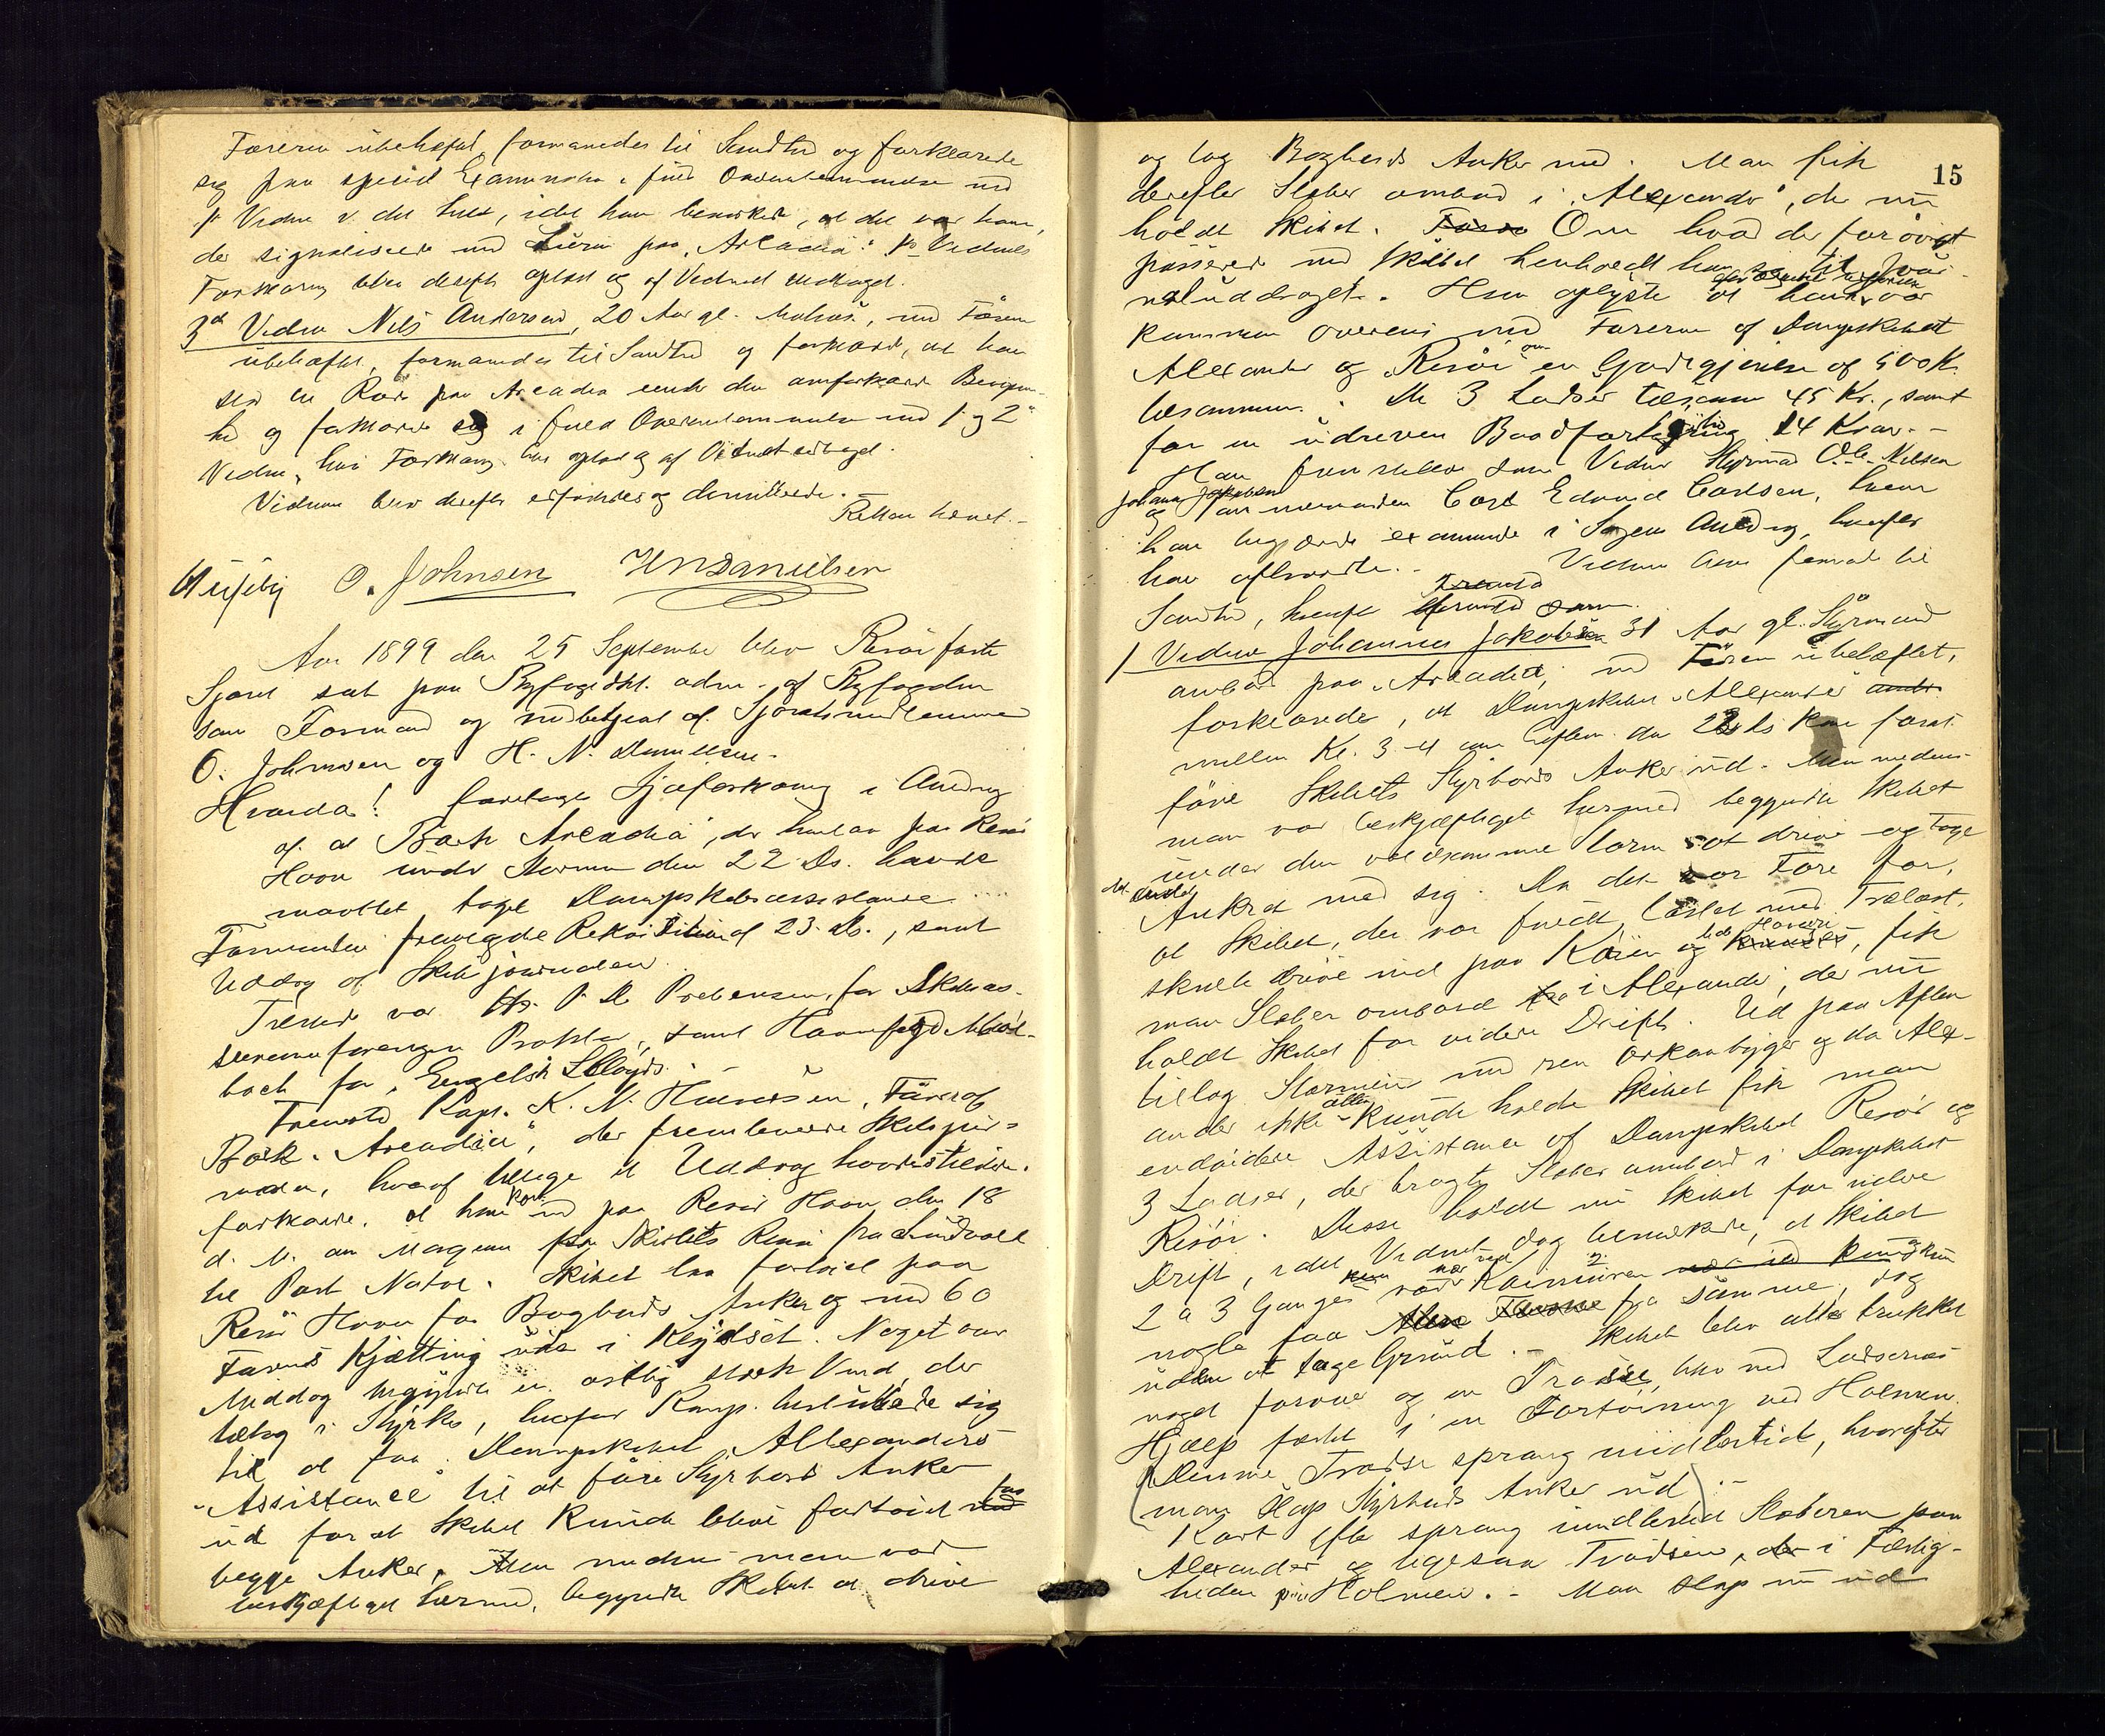 Føreren ubehæftet, formanedes til Sandhed og forklarede
sig paa speciel Examination i fuld Overensstemmelse med
1ste Vidne i det hele, idet han bemærket, at det var ham,
der signaliserede med Luren paa "Arcadia". Vidnets
Forklaring blev derefter oplæst og af Vidnet vedtaget.
3d Vidne Nils Andersen, 20 Aar gl. Matros, med Føreren
ubehæftet, formanedes til Sandhed og forklared, at han
stod til Rors paa Arcadia under den omforklarede Begiven-
hed og forklarede sig i fuld Overensstemmelse med 1ste og 2det
Vidne, hvis Forklaring blev oplæst og af Vidnet vedtaget.
Vidnerne blev derefter edfæstede og dimitterede.
Retten hævet.
O. Johnsen H N Danielsen
Aar 1899 den 25 September blev Risør faste
Sjøret sat paa Byfogedkt. adm. af Byfogden
som Formand og medbetjent af Sjøretsmedlemmerne
O. Johnsen og H. N. Danielsen.
Hvorda! foretoges Sjøforklaring i Anledning
af at Bark "Arcadia", der havde paa Risør
Havn under Stormen den 22 Ds. havde
maattet taget Dampskibsassistance
Formanden fremlagde Rekvisition af 23. Ds., samt
Uddrag af Skibsjournalen.
Tilstede var Hr. P. D. Prebensen for Skibsas-
suranceforeningen samt Havnefoged
for "Engelsk Lloyds".
Fremstod Kapt. K. N. Fører af
Bark "Arcadia", der fremleverede Skibsjour-
nalen, hvoraf tillige et Uddrag
forklarede, at han kom ind paa Risør Havn den 18
d. M. om Morgenen paa Skibets Reise fra Sundsvall
til Port Natal. Skibet laa fortøiet paa
Risør Havn for Bagbords Anker og med 60
Favne Kjætting ude i Klydset. Noget over
Middag begyndte en østlig stærk Vind, der
tiltog i Styrke, hvorfor Komp. besluttede sig
til at faa Dampskibet "Alexanders"
Assistance til at føre Styrbords Anker
ud for at Skibet kunde blive fortøiet for
begge Anker. Men medens man var
beskjæftiget hermed, begyndte Skibet at drive
15
og tog Bagbords Anker med. Man fik
derefter Slæber ombord i "Alexander", der nu
holdt Skibet. Om hvad der forøvrigt
passerede med Skibet henholdt han sig til Jour-
naluddraget. Han oplyste at han var
kommen overens med Føreren af Dampskibet
Alexander og "Risør" om en Godtgjørelse af 500 Kr.
tilsammen. De 3 Lodser tilsammen 45 Kr., samt
for en udreven Baadfortøining 14 Kroner.
Han fremstillede som Vidner Styrmand
Johannes Jakobsen
og Tømmermanden Carl Edvard Carlsen, hvem
han begjærede examineret i Sagens Anledning, hvorfor
han afhørtes. Vidnerne blev formanet til
Sandhed, hvorefter fremstod som
1 Vidne Johannes Jakobsen 31 Aar gl. Styrmand
ombord paa "Arcadia", med Føreren ubehæftet,
forklarede, at Dampskibet "Alexander"
mellem Kl. 3-4 om Eftm. den 22 ds kom for at
føre Skibets Styrbords Anker ud. Men medens
man var beskjæftiget hermed begyndte Skibet
under den voldsomme Storm at drive og tage
Ankret med sig. Da det var Fare for,
at Skibet, der var fuldt lastet med Trælast,
skulde drive ind paa Kaien og lide Havari, fik
man Slæber ombord i "Alexander", der nu
holdt Skibet for videre Drift. Ud paa Aftenen
tiltog Stormen med ren Orkanbyger og da Alex-
ander ikke alene kunde holde Skibet fik man
endvidere Assistance af Dampskibet Risør og
3 Lodser, der bragte Slæber ombord i Dampskibet
Risør. Disse holdt nu Skibet for videre
Drift, idet Vidnet dog bemærkede, at Skibet
2 a 3 Gange var nær ved Kaimuren og kun
nogle faa fra samme, dog
uden at tage Grund. Skibet blev atter trukket
noget forover og en Trosse blev ved Lodsernes
Hjælp fæstet i en Fortøining ved Holmen.
Denne Trosse sprang imidlertid, hvorefter
man slap Styrbords Anker ud
Kort efter sprang imidlertid Slæberen paa
Alexander og ligesaa Trossen, der i Færdig-
heden paa Holmen. Man slap nu ud